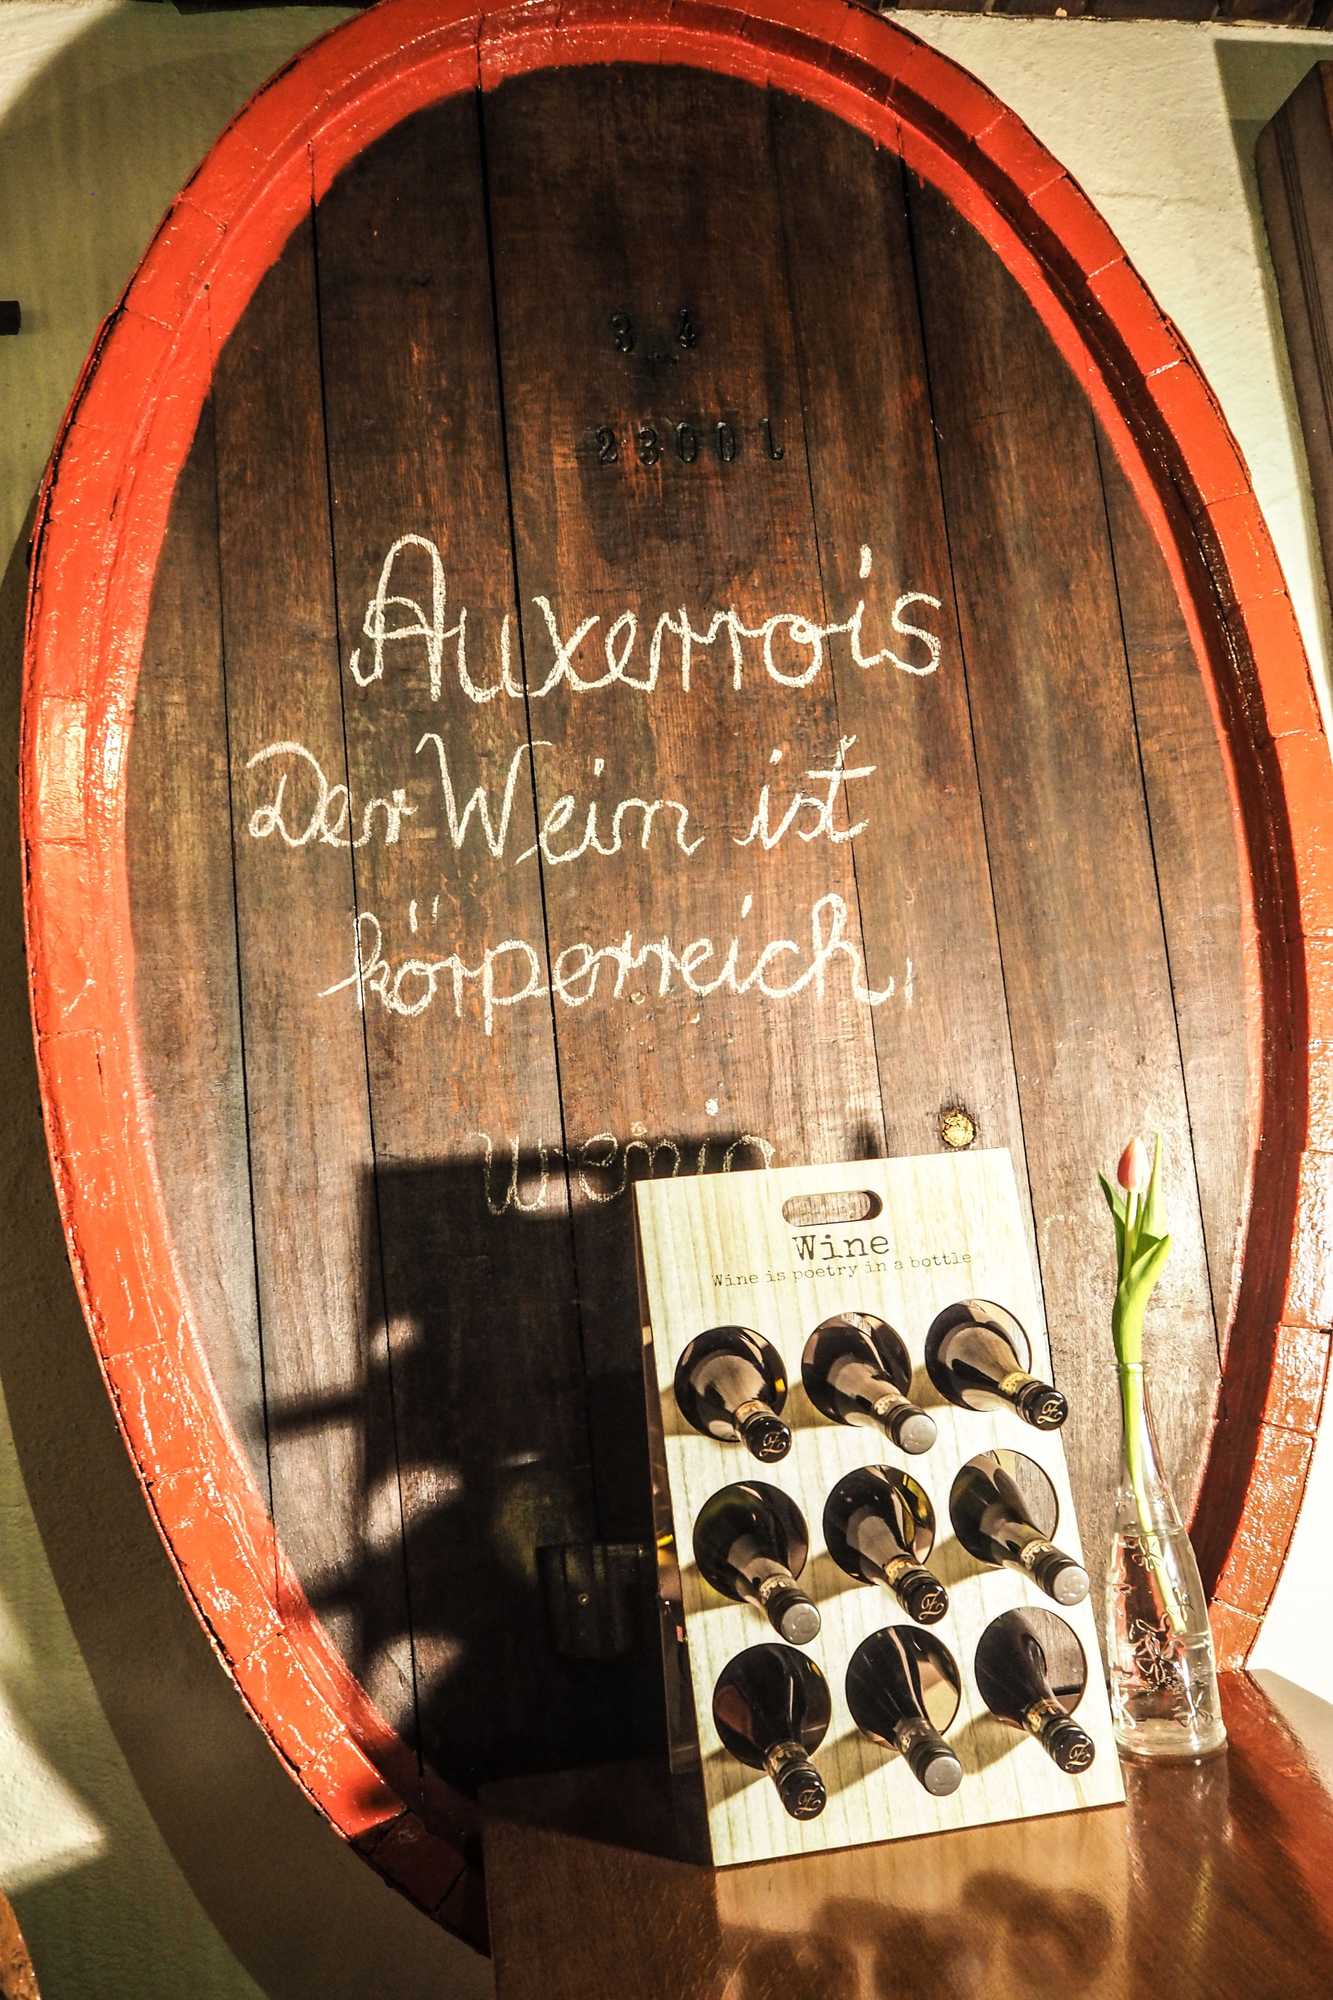 3 4
2300 l
Auxerrois
Der Wein ist
körperreich,
Wine
Wine is poetry in a bottle
Z
Z
Z
Z
Z